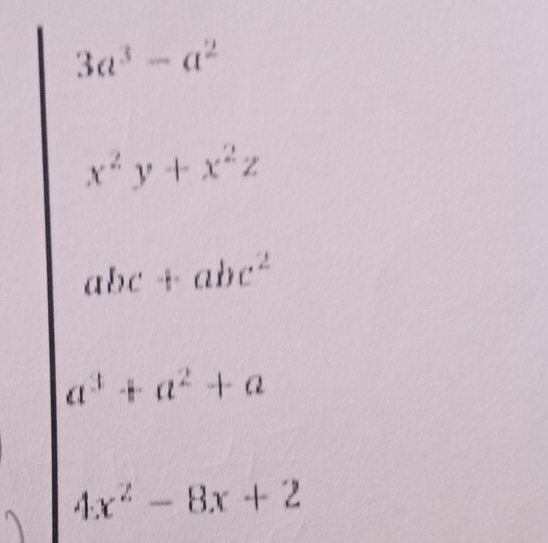 3a³ − a²
x² y + x² z
abc + abc²
a³ + a² + a
4x² − 8x + 2